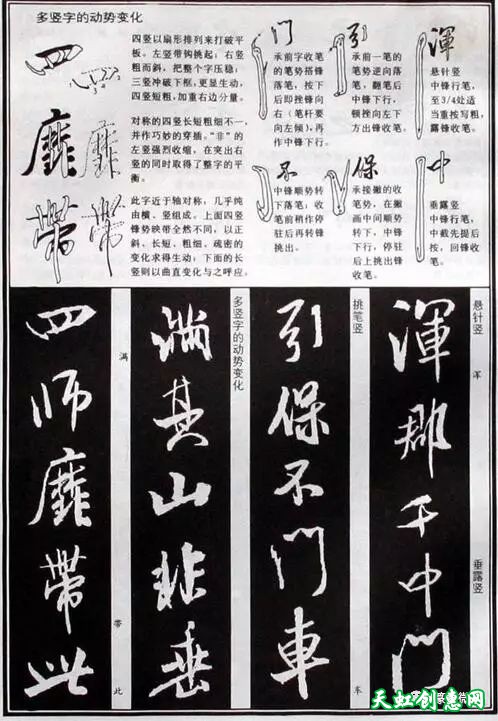 多竖字的动势变化
四
四竖以扇形排列来打破平
板。左竖带钩挑起；右竖
粗而斜，把整个字压稳；
三竖冲破下框，更显生动，
四竖短粗，加重右边分量。
靡
对称的四竖长短粗细不一，
并作巧妙的穿插。“非”的
左竖强烈收缩，在突出右
竖的同时取得了整字的平
衡。
带
此字近于轴对称，几乎纯
由横、竖组成。上面四竖
锋势映带全然不同，以正
斜、长短、粗细、疏密的
变化求得生动；下面的长
竖则以曲直变化与之呼应。
門
承前字收笔
的笔势搭锋
落笔，按下
后即挫锋向
右（笔杆要
向左倾），再
作中锋下行。
引
承前一笔的
笔势逆向落
笔，翻笔后
中锋下行，
顿挫向左下
方出锋收笔。
渾
悬针竖
中锋行笔，
至3/4处适
当重按写粗，
露锋收笔。
不
中锋顺势转
下落笔，收
笔前稍作停
驻后再转锋
挑出。
保
承接撇的收
笔势，在撇
画中间顺势
转下，中锋
下行，停驻
后上挑出锋
收笔。
中
垂露竖
中锋行笔，
中截先提后
按，回锋收
笔。
悬针竖
浑
垂露竖
渾
那
千
中
門
挑笔竖
车
引
保
不
門
車
多竖字的动势变化
满
其
山
非
垂
满
带
此
四
师
靡
帶
此
天虹创意网